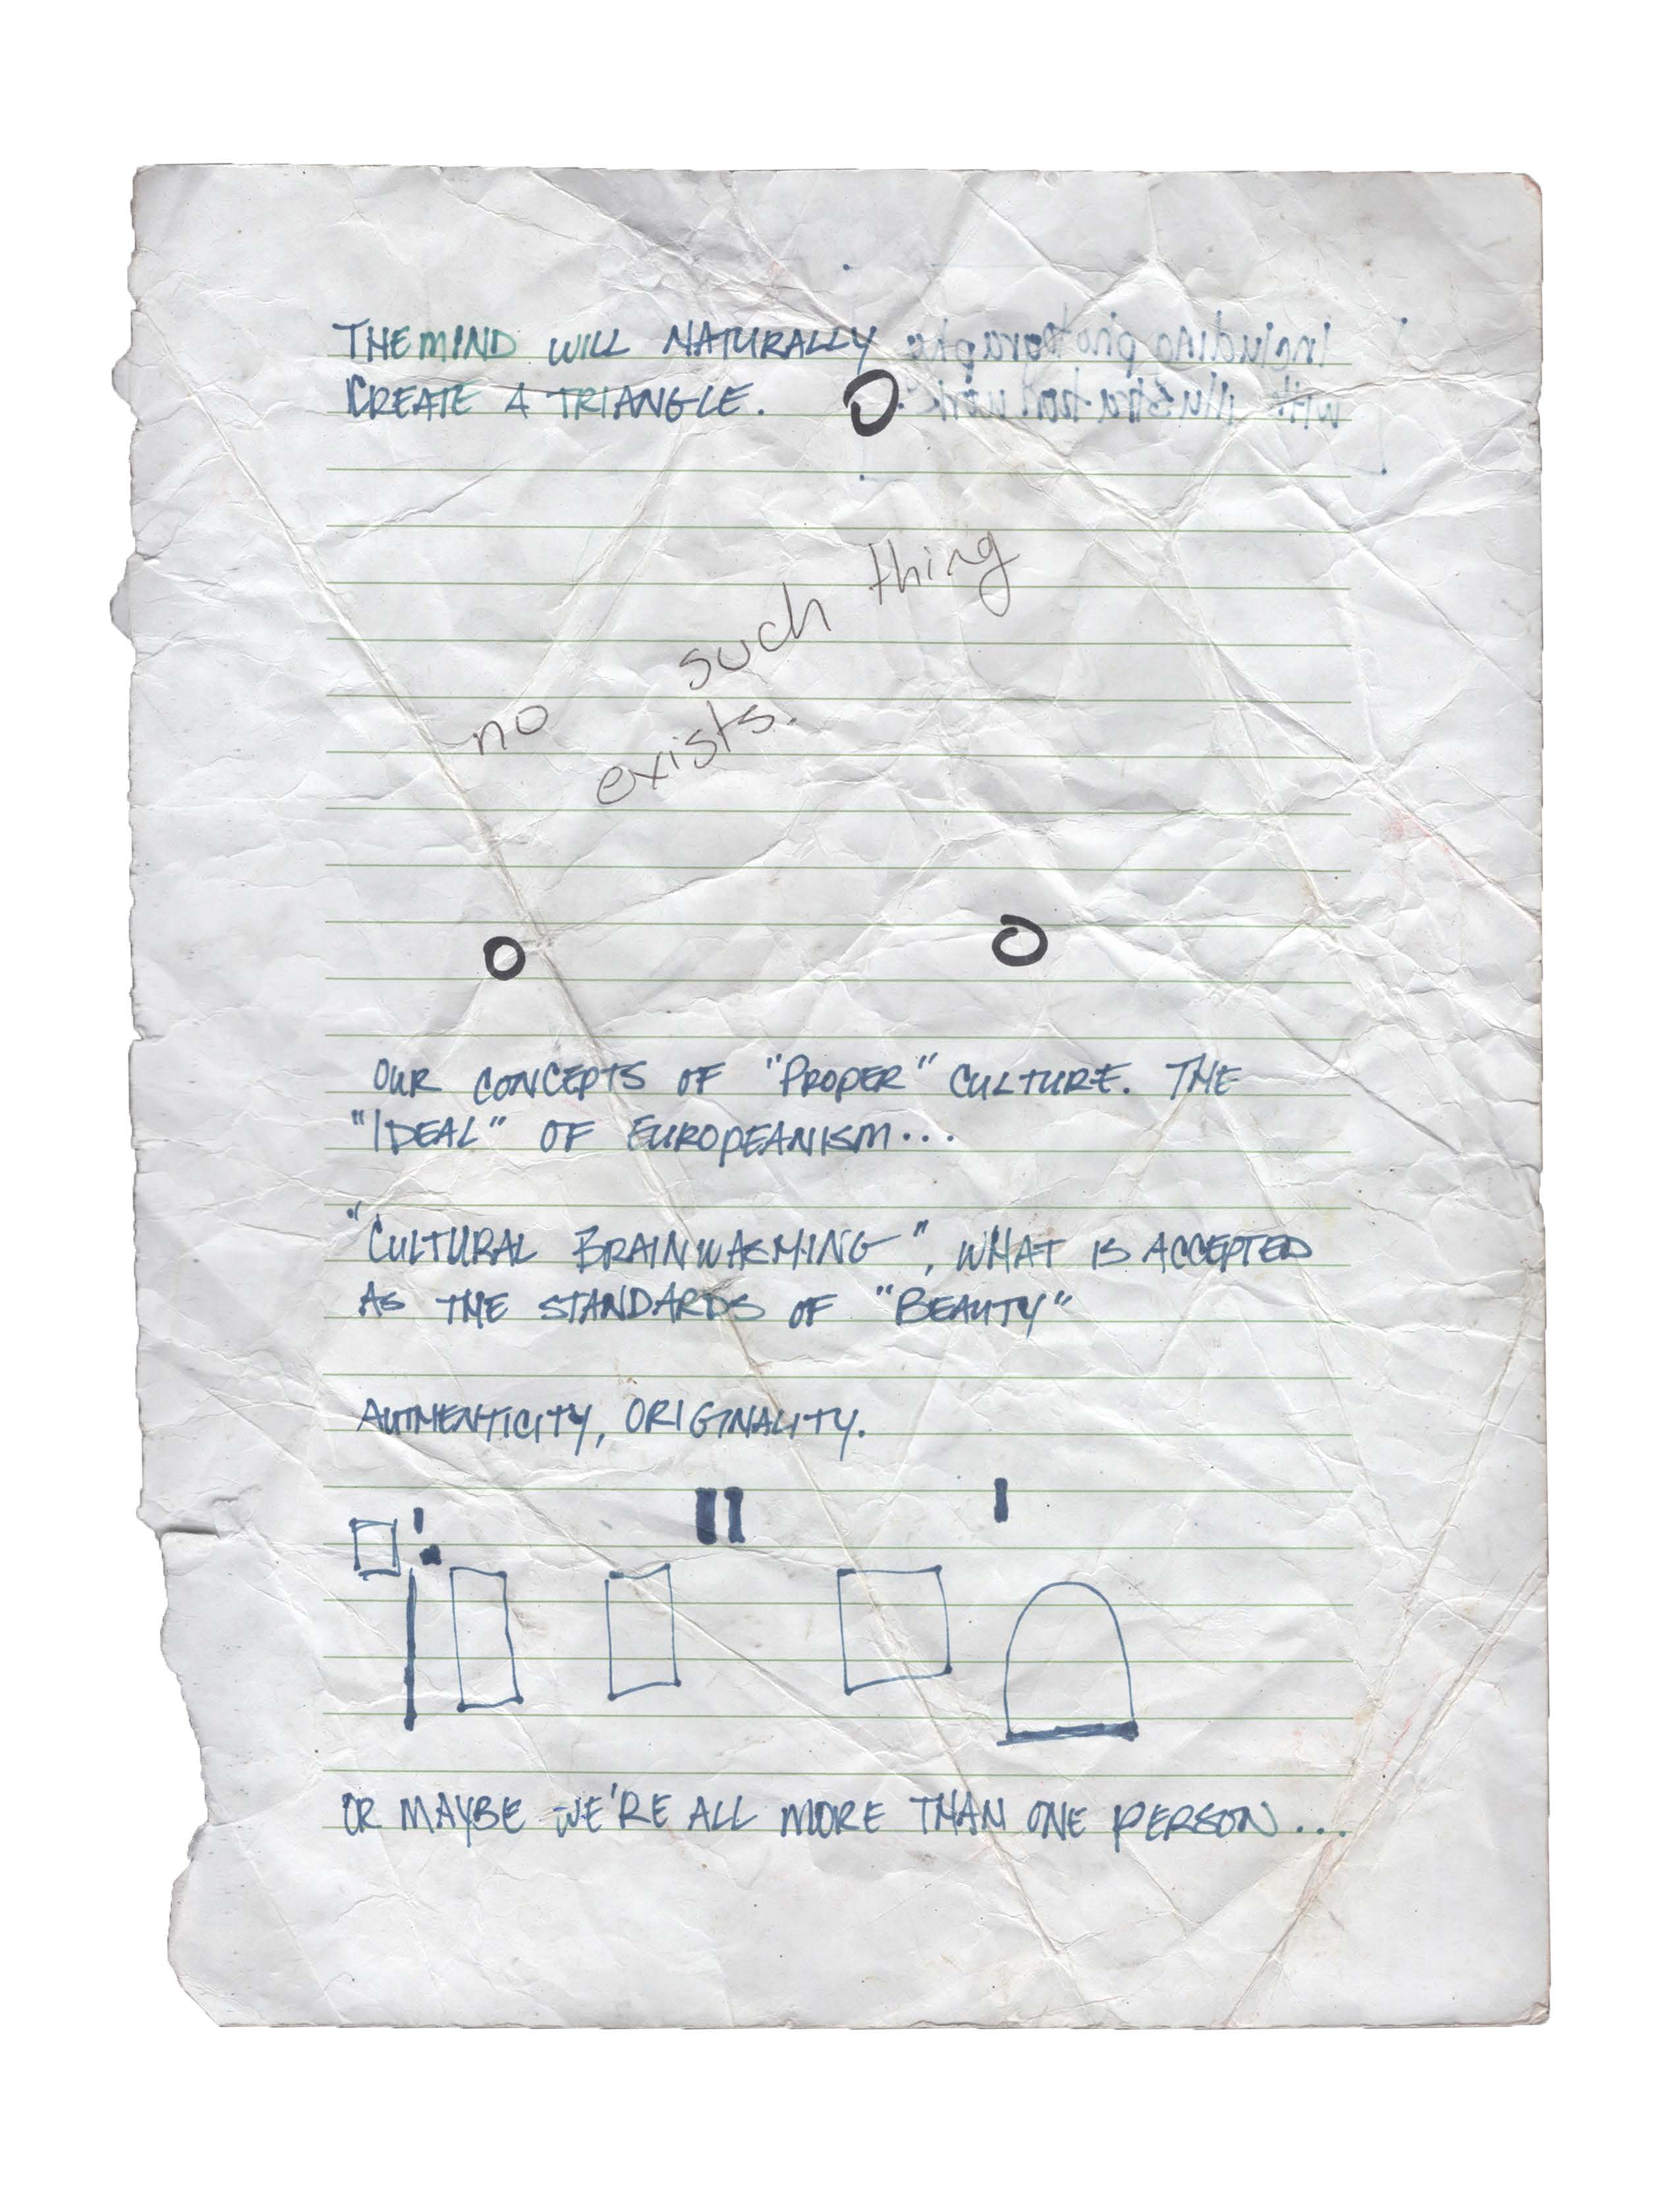 THE MIND WILL NATURALLY
CREATE A TRIANGLE.
including photography
with illustration work.
no such thing
exists.
OUR CONCEPTS OF "PROPER" CULTURE. THE
"IDEAL" OF EUROPEANISM...
"CULTURAL BRAINWASHING", WHAT IS ACCEPTED
AS THE STANDARDS OF "BEAUTY"
AUTHENTICITY, ORIGINALITY.
OR MAYBE WE'RE ALL MORE THAN ONE PERSON...